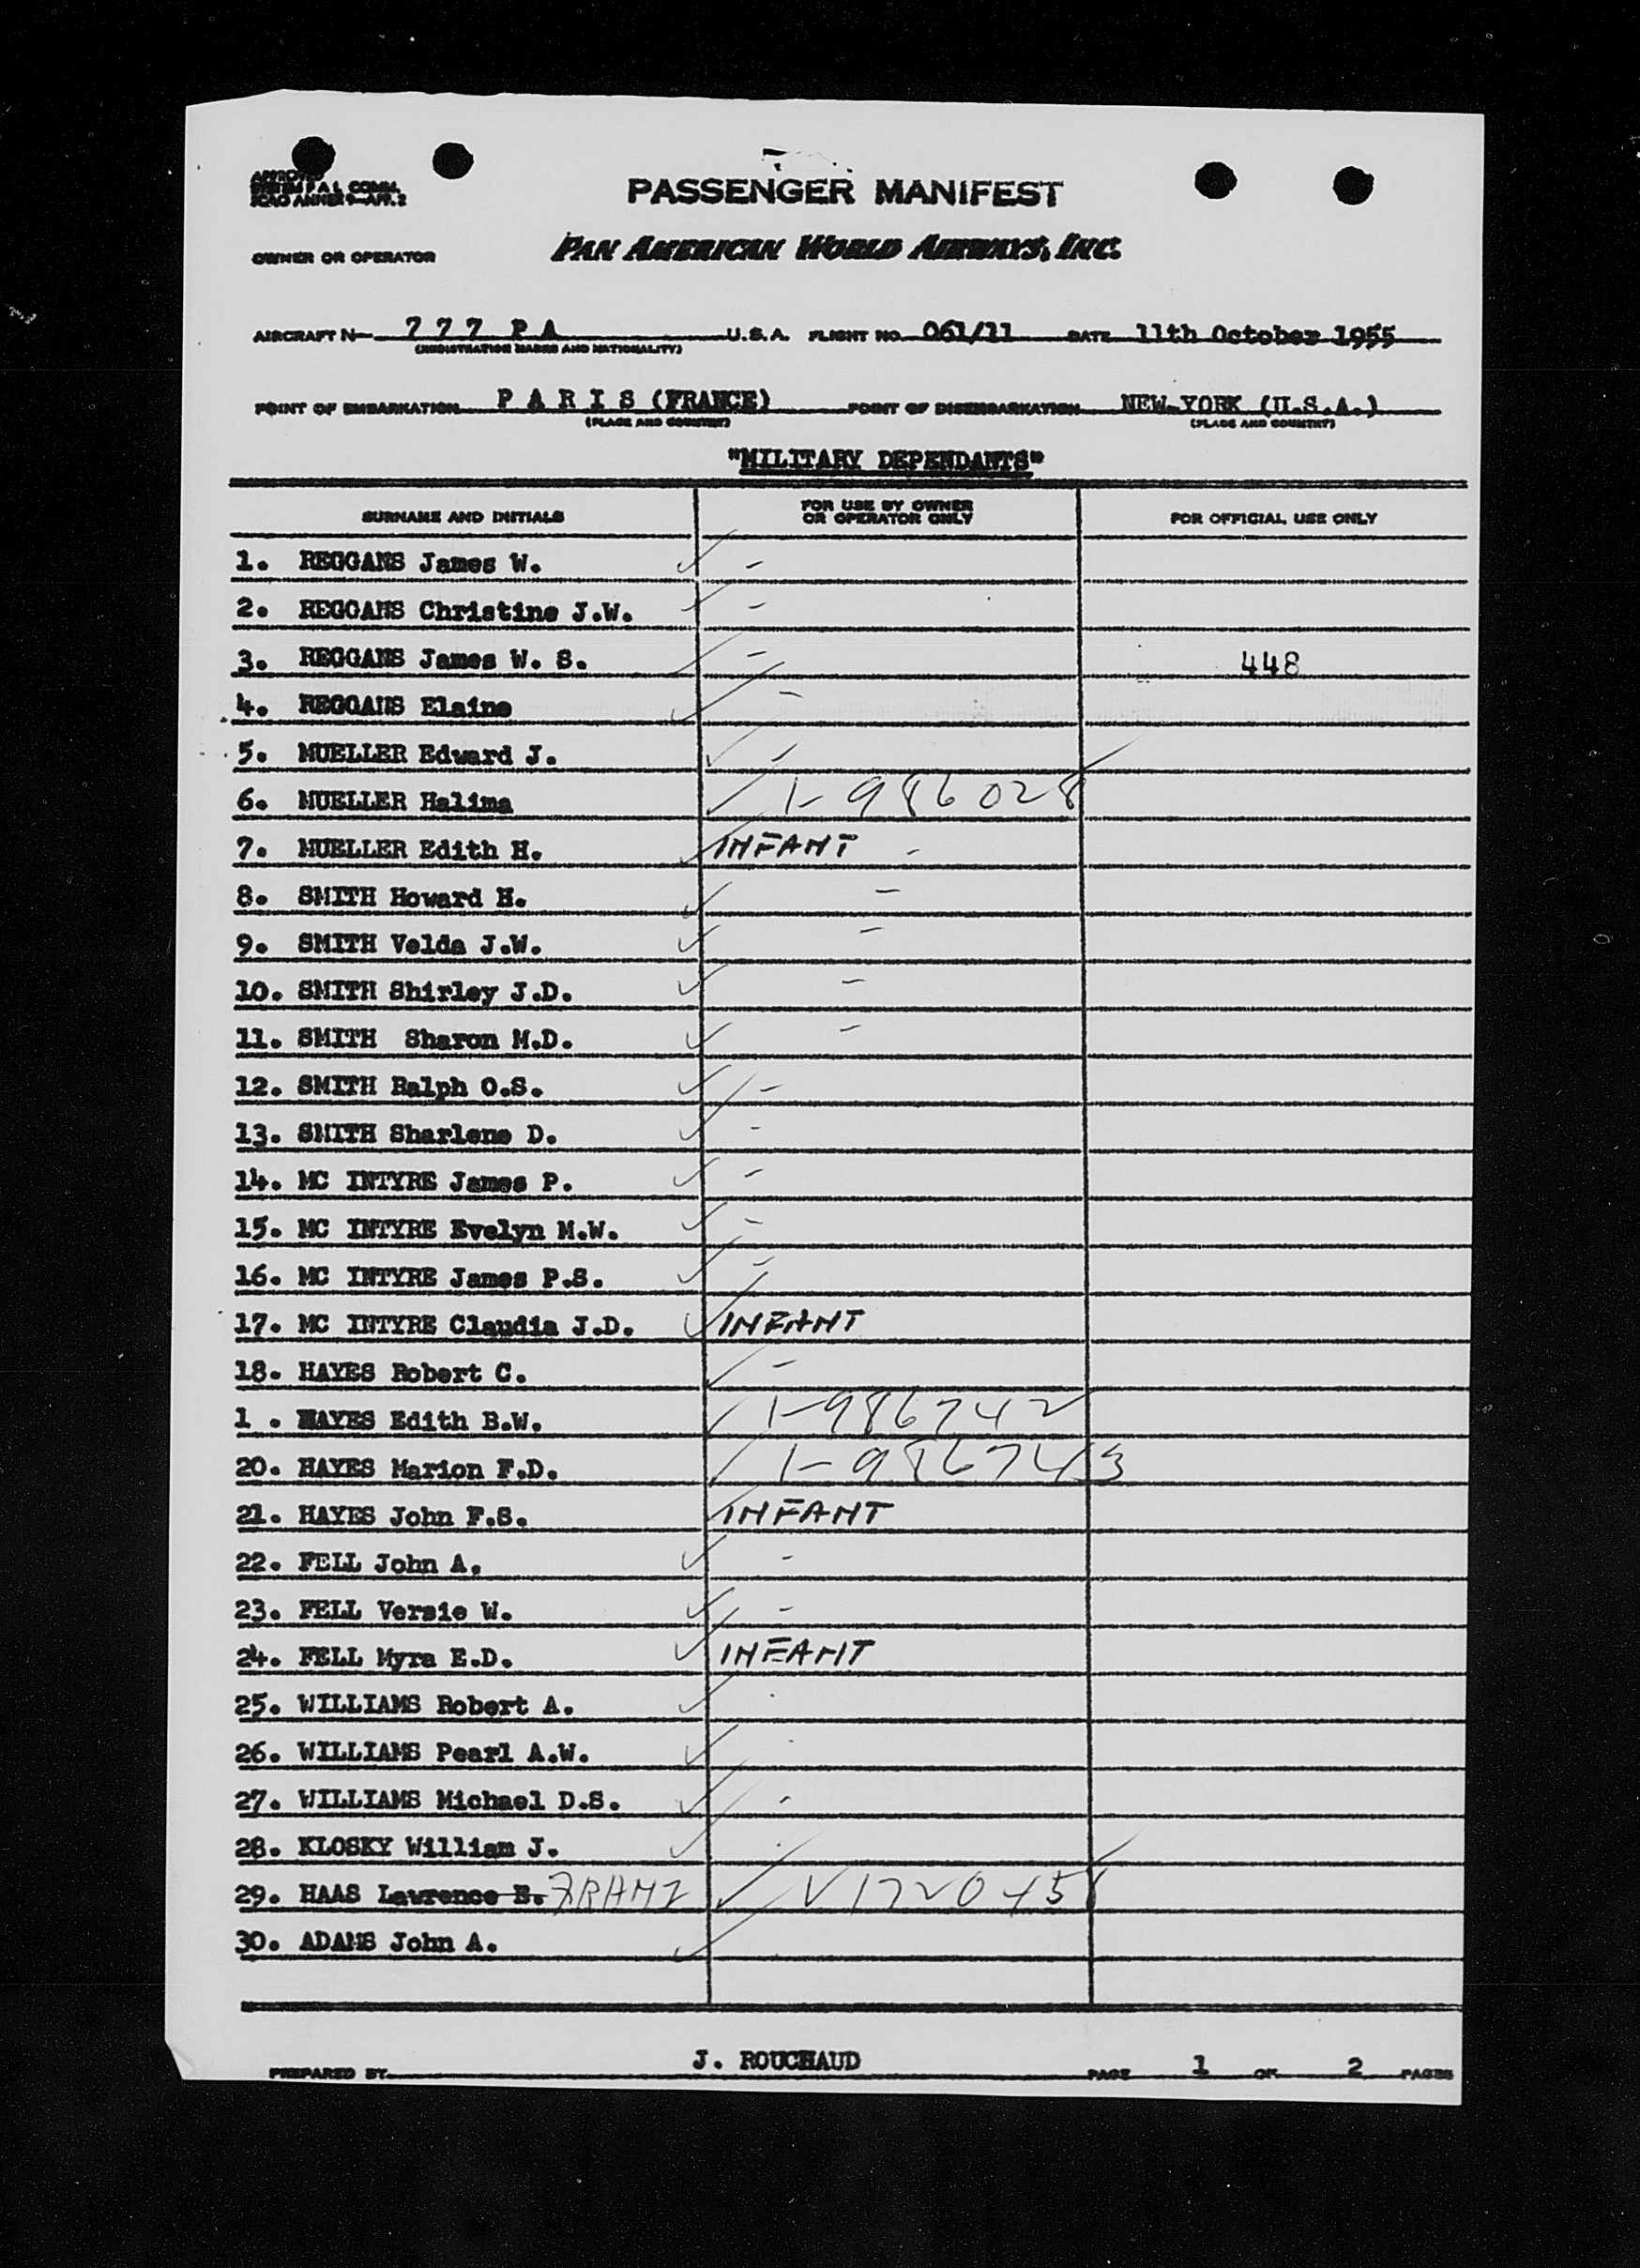 APPROVED
SYSTEM F A L COMM.
ICAO ANNEX 9—APP. 2
PASSENGER MANIFEST
OWNER OR OPERATOR PAN AMERICAN WORLD AIRWAYS, INC.
AIRCRAFT N— 7 7 7 P A U.S.A. FLIGHT NO. 061/11 DATE 11th October 1955
(REGISTRATION MARKS AND NATIONALITY)
POINT OF EMBARKATION P A R I S (FRANCE) POINT OF DISEMBARKATION NEW YORK (U.S.A.)
(PLACE AND COUNTRY) (PLACE AND COUNTRY)
"MILITARY DEPENDANTS"
SURNAME AND INITIALS FOR USE BY OWNER OR OPERATOR ONLY FOR OFFICIAL USE ONLY
1. REGGANS James W. -
2. REGGANS Christine J.W. -
3. REGGANS James W. S. - 448
4. REGGANS Elaine -
5. MUELLER Edward J. -
6. MUELLER Halima 1-986028
7. MUELLER Edith H. INFANT -
8. SMITH Howard H. -
9. SMITH Velda J.W. -
10. SMITH Shirley J.D. -
11. SMITH Sharon M.D. -
12. SMITH Ralph O.S. -
13. SMITH Sharlene D. -
14. MC INTYRE James P. -
15. MC INTYRE Evelyn M.W. -
16. MC INTYRE James P.S. -
17. MC INTYRE Claudia J.D. INFANT
18. HAYES Robert C. -
1 . HAYES Edith B.W. 1-986742
20. HAYES Marion F.D. 1-986743
21. HAYES John F.S. INFANT
22. FELL John A. -
23. FELL Versie W. -
24. FELL Myra E.D. INFANT
25. WILLIAMS Robert A.
26. WILLIAMS Pearl A.W.
27. WILLIAMS Michael D.S. -
28. KLOSKY William J.
29. HAAS Lawrence E. FRANZ
30. ADAMS John A.
PREPARED BY J. ROUCHAUD PAGE 1 OF 2 PAGES